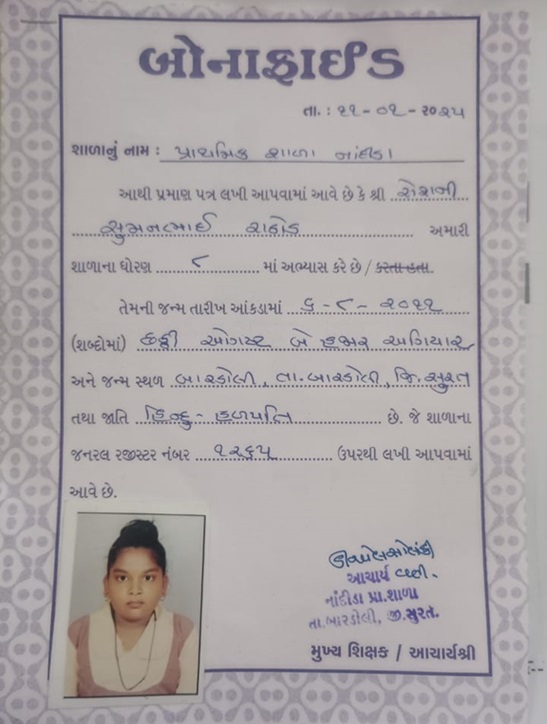 બોનાફાઈડ
તા. : ૨૨-૦૧-૨૦૨૫
શાળાનું નામ : પ્રાથમિક શાળા નાંદીડા
આથી પ્રમાણ પત્ર લખી આપવામાં આવે છે કે શ્રી રોશની
સુમનભાઈ રાઠોડ અમારી
શાળાના ધોરણ ૮ માં અભ્યાસ કરે છે / કરતા હતા.
તેમની જન્મ તારીખ આંકડામાં ૬-૮-૨૦૧૧
(શબ્દોમાં) છઠ્ઠી ઓગષ્ટ બે હજાર અગિયાર
અને જન્મ સ્થળ બારડોલી, તા.બારડોલી, જિ.સુરત
તથા જાતિ હિન્દુ-હળપતિ છે. જે શાળાના
જનરલ રજીસ્ટર નંબર ૧૨૬૫ ઉપરથી લખી આપવામાં
આવે છે.
આચાર્ય
નાંદીડા પ્રા.શાળા
તા.બારડોલી, જી.સુરત.
મુખ્ય શિક્ષક / આચાર્યશ્રી